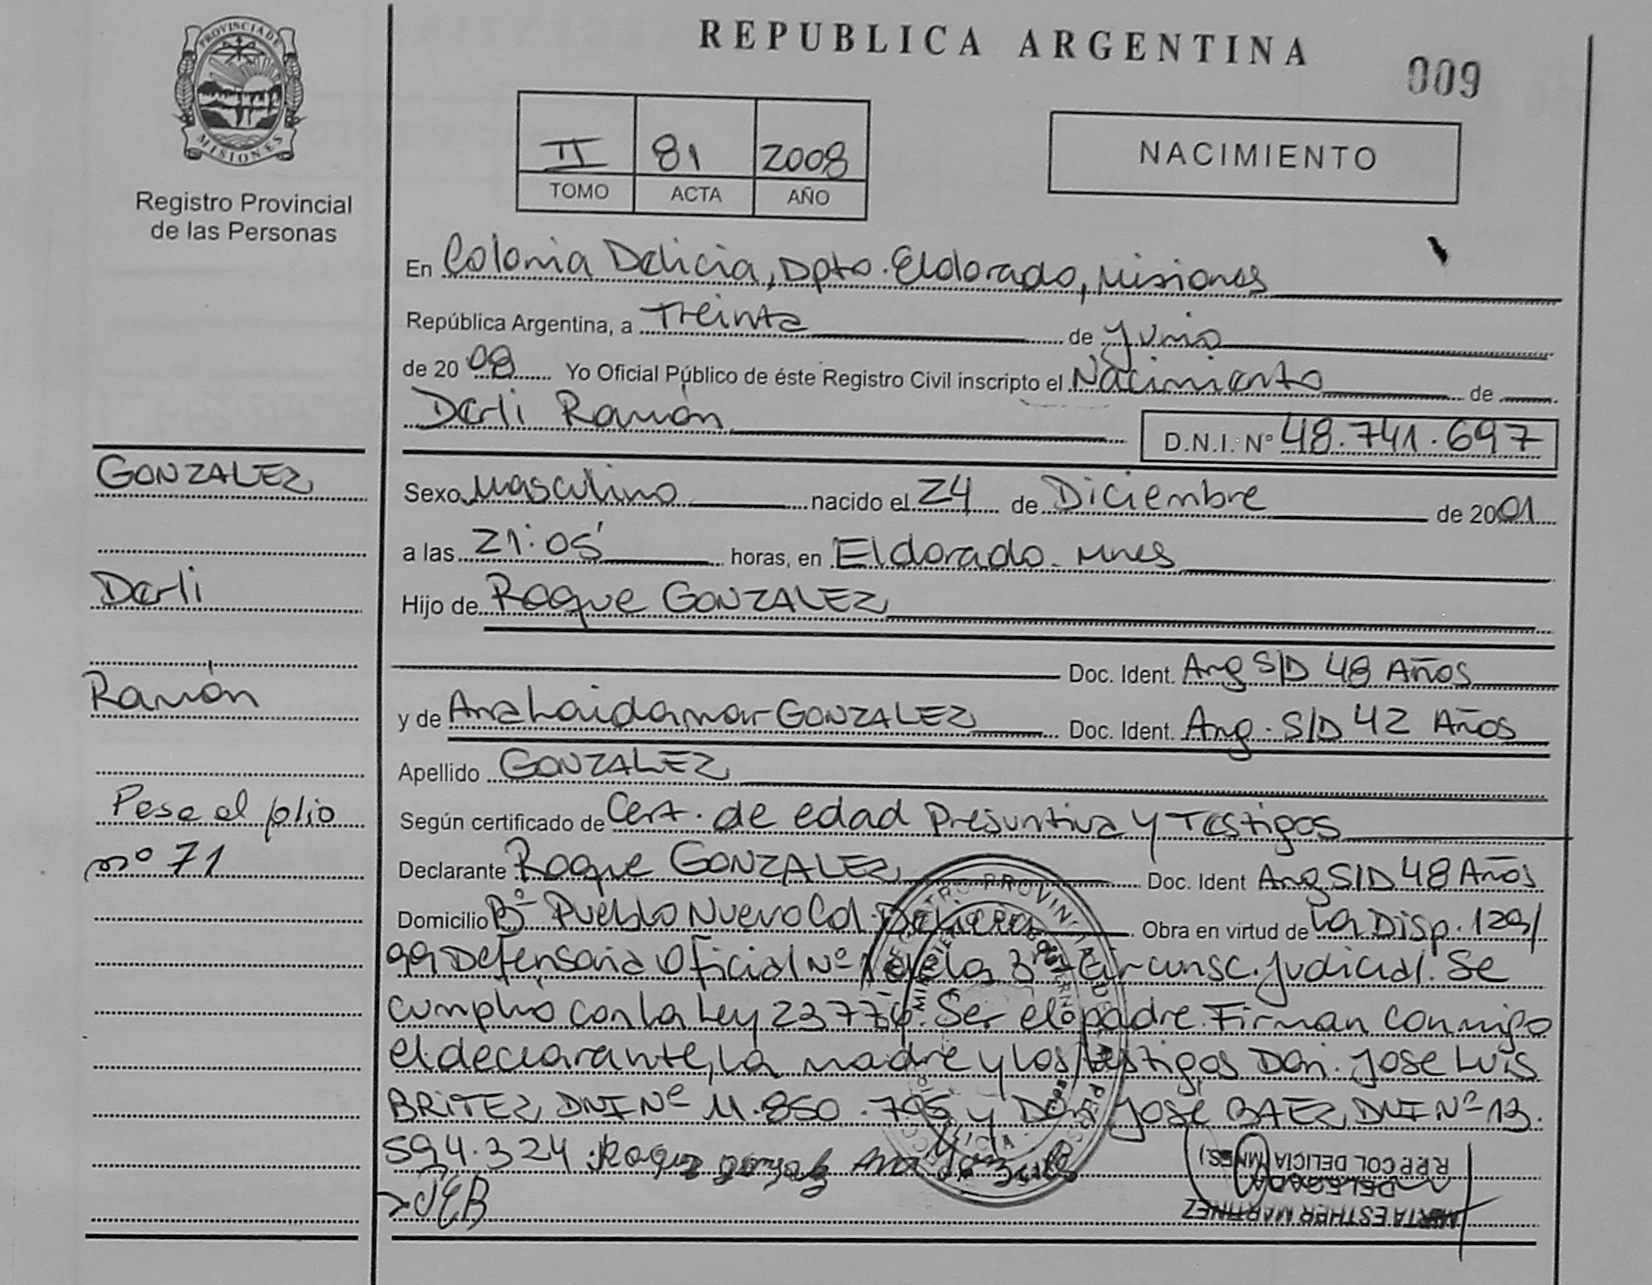 PROVINCIA DE
MISIONES
Registro Provincial
de las Personas
REPUBLICA ARGENTINA
009
II 81 2008
TOMO ACTA AÑO
NACIMIENTO
En Colonia Delicia, Dpto. Eldorado, Misiones
República Argentina, a Treinta de Junio
de 2008 Yo Oficial Público de éste Registro Civil inscripto el Nacimiento de
Darli Ramón D.N.I. Nº 48.741.697
GONZALEZ
Sexo Masculino nacido el 24 de Diciembre de 2001
a las 21:05' horas, en Eldorado - Mnes
Darli
Hijo de Roque GONZALEZ
Doc. Ident. Arg S/D 48 Años
Ramón
y de GONZALEZ Doc. Ident. Arg. S/D 42 Años
Apellido GONZALEZ
Pase al folio
nº 71
Según certificado de Cert. de edad Presuntiva y Testigos
Declarante Roque GONZALEZ Doc. Ident Arg S/D 48 Años
Domicilio Bº Pueblo Nuevo Col. Delicia Obra en virtud de La Disp. 129/
99 Defensoria Oficial Nº 1 de la 3ra Circunsc. Judicial. Se
cumplió con la Ley 23776. Ser el padre. Firman conmigo
el declarante, la madre y los testigos Don. Jose Luis
BRITEZ DNI Nº 11.850.795 y Don José BAEZ DNI Nº 13.
594.324. Roque Gonzalez Ana
JEB
MIRTA ESTHER MARTINEZ
DELEGADA
R.P.P COL DELICIA (MNES)